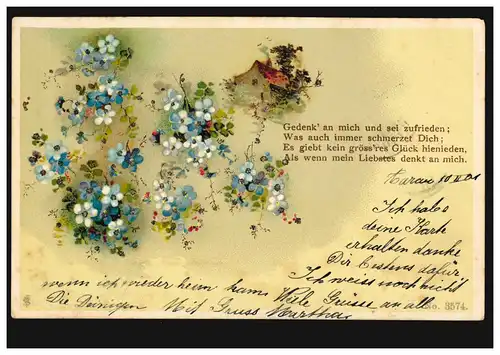 Gedenk' an mich und sei zufrieden;
Was auch immer schmerzet Dich;
Es giebt kein gröss'res Glück hienieden,
Als wenn mein Liebstes denkt an mich.
Aarau 10 II 01
Ich habe
deine Karte
erhalten danke
Dir bestens dafür
Ich weiss noch nicht
wenn ich wieder heim kann Viele Grüsse an alle
Die Deinigen Mit Gruss Martha
No. 3574.